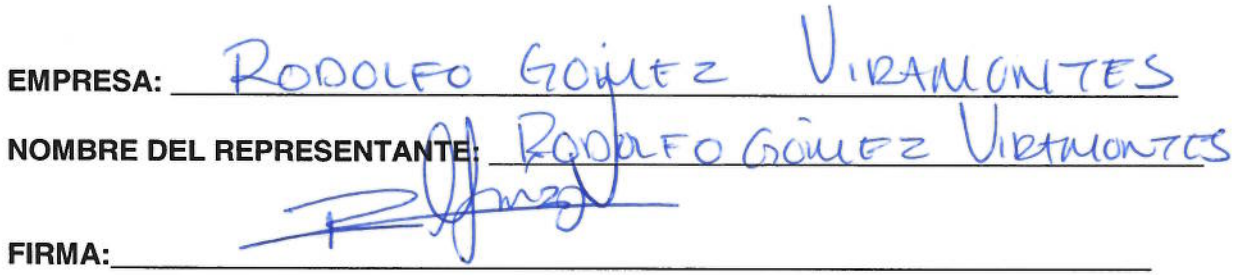 EMPRESA: RODOLFO GÓMEZ VIRAMONTES
NOMBRE DEL REPRESENTANTE: RODOLFO GÓMEZ VIRAMONTES
FIRMA: